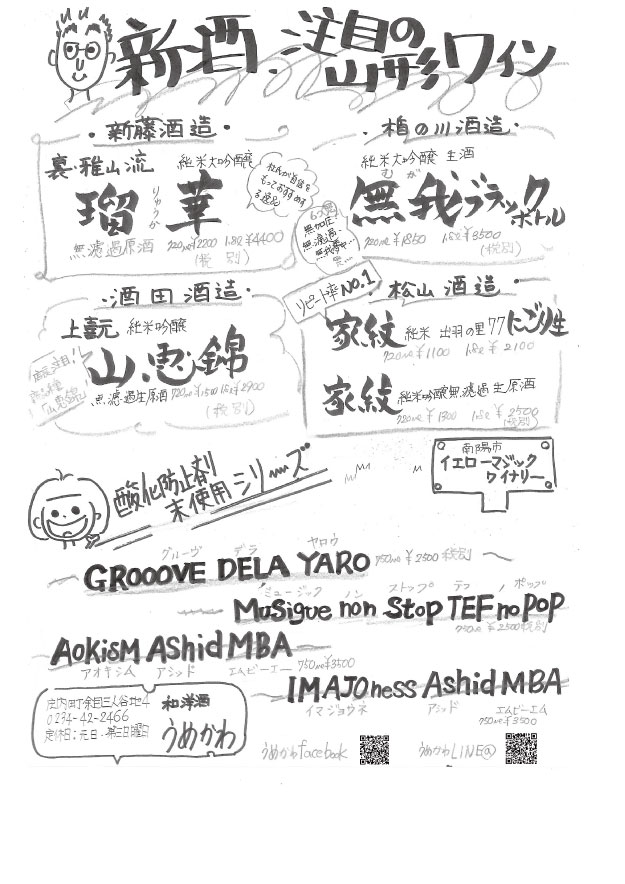 新酒、注目の
山形ワイン
・新藤酒造・
裏・雅山流 純米大吟醸
瑠華
りゅうか
杜氏が自信を
もっておすすめす
る逸品
無濾過原酒 720ml ¥2200 1.8L ¥4400
(税別)
・楯の川酒造・
純米大吟醸 生酒
むが
無我ブラック
ボトル
無加圧
無濾過
720ml ¥1850 1.8L ¥3500
(税別)
・酒田酒造・
上喜元 純米吟醸
山恵錦
「山恵錦」
無濾過生原酒 720ml ¥1510 1.8L ¥2900
(税別)
リピート率NO.1
・松山酒造・
家紋 純米 出羽の里77 にごり生
720ml ¥1100 1.8L ¥2100
家紋 純米吟醸無濾過生原酒
720ml ¥1300 1.8L ¥2500
(税別)
酸化防止剤
未使用シリーズ
南陽市
イエローマジック
ワイナリー
グルーヴ デラ ヤロウ
GROOOVE DELA YARO 750ml ¥2500 税別
ミュージック ノン ストップ テフ ノ ポップ
MuSigue non Stop TEF no POP
750ml ¥2500税別
AOKISM AShid MBA
アオキシム アシッド エムビーエー 750ml ¥3500
IMAJOness AShid MBA
イマジョウネス アシッド エムビーエム
750ml ¥3500
庄内町余目三人谷地4
0234-42-2466
定休日:元日・第三日曜日
和洋酒
うめかわ
うめかわfacebook
うめかわLINE@